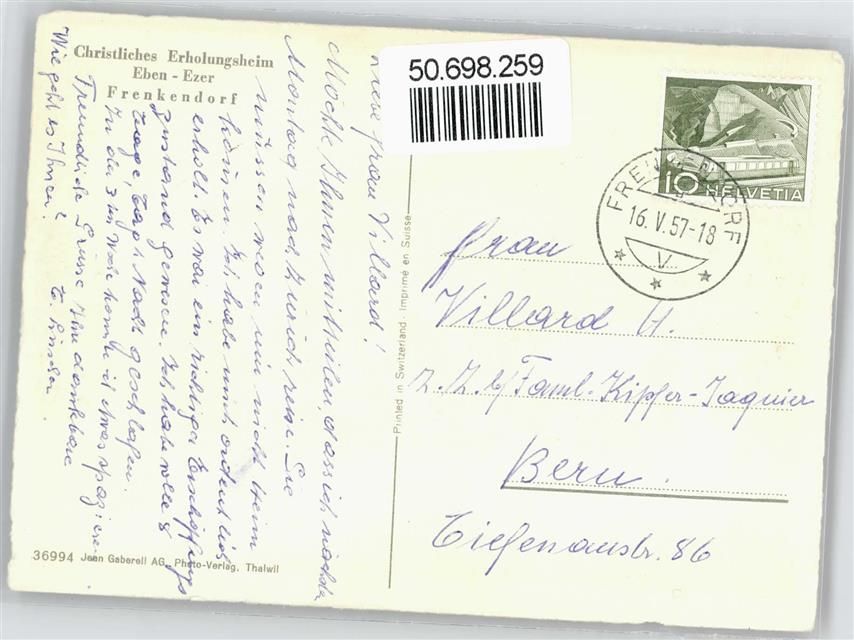 Christliches Erholungsheim
Eben-Ezer
Frenkendorf
50.698.259
HELVETIA
10
FRENKENDORF
16.V.57-18
V
Liebe Frau Villard!
Möchte Ihnen mitteilen, dass ich nächsten
Montag nach Zürich reise. Sie
müssen wegen mir nicht heim
kommen. Ich habe mich ordentlich
erholt. Es war ein richtiger Erschöpfungs
zustand gewesen. Ich habe volle 8
Tage, Tag & Nacht geschlafen.
In der 3ten Woche konnte ich etwas spazieren
Freundliche Grüsse Ihre dankbare
Wie geht es Ihnen?
Printed in Switzerland · Imprimé en Suisse
Frau
Villard H.
z. Z. b/ Faml. Kipfer-Jaquier
Bern.
Tiefenaustr. 86
36994 Jean Gaberell AG, Photo-Verlag, Thalwil